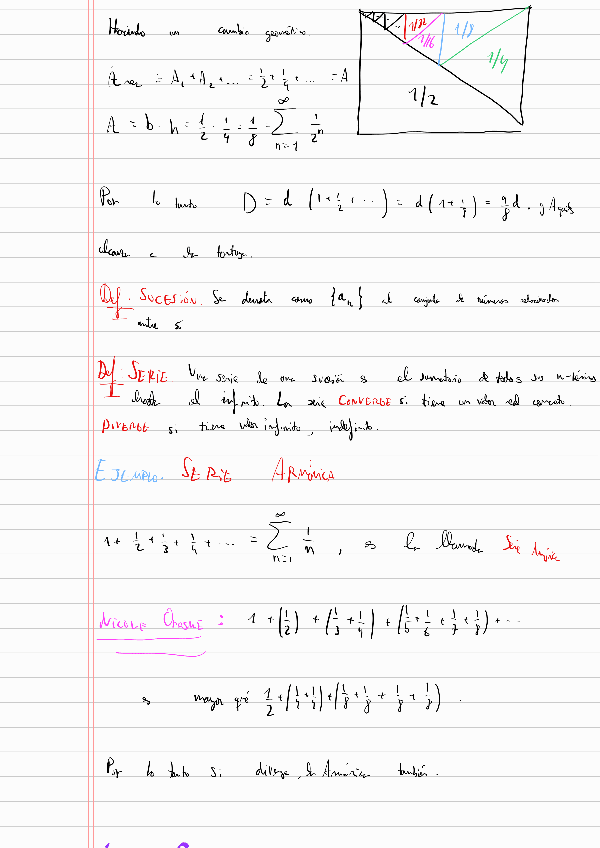 Haciendo un cambio geométrico.
1/32
1/16
1/8
1/4
1/2
= A₁ + A₂ + ... = 1/2 + 1/4 + ... = A
A = b · h = 1/2 · 1/4 = 1/8 = ∑_{n=1}^{∞} 1/2ⁿ
Por lo tanto D = d (1 + 1/2 + ...) = d (1 + 1/8) = 9/8 d. y Aquiles
alcanza a la tortuga.
Def. SUCESIÓN. Se denota como {aₙ} al conjunto de números relacionados
1
entre sí
Def SERIE Una serie de una sucesión es el sumatorio de todos sus n-térmios
1
hasta el infinito. La serie CONVERGE si tiene un valor real concreto.
DIVERGE si tiene valor infinito, indefinito.
EJEMPLO. SERIE ARMÓNICA
1 + 1/2 + 1/3 + 1/4 + ... = ∑_{n=1}^{∞} 1/n , es la llamada Serie
NICOLE ORESME : 1 + (1/2) + (1/3 + 1/4) + (1/5 + 1/6 + 1/7 + 1/8) + ...
es mayor qué 1/2 + (1/4 + 1/4) + (1/8 + 1/8 + 1/8 + 1/8) .
Por lo tanto si diverge, la Armónica también.